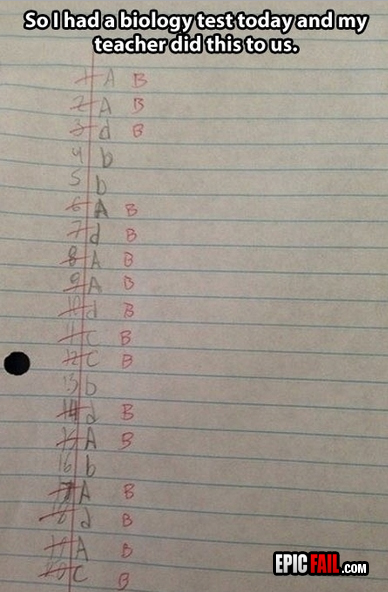 So I had a biology test today and my
teacher did this to us.
1 A B
2 A B
3 d B
4 b
5 b
6 A B
7 d B
8 A B
9 A B
10 d B
11 C B
12 C B
13 b
14 d B
15 A B
16 b
17 A B
18 d B
19 A B
20 C B
EPIC FAIL.COM